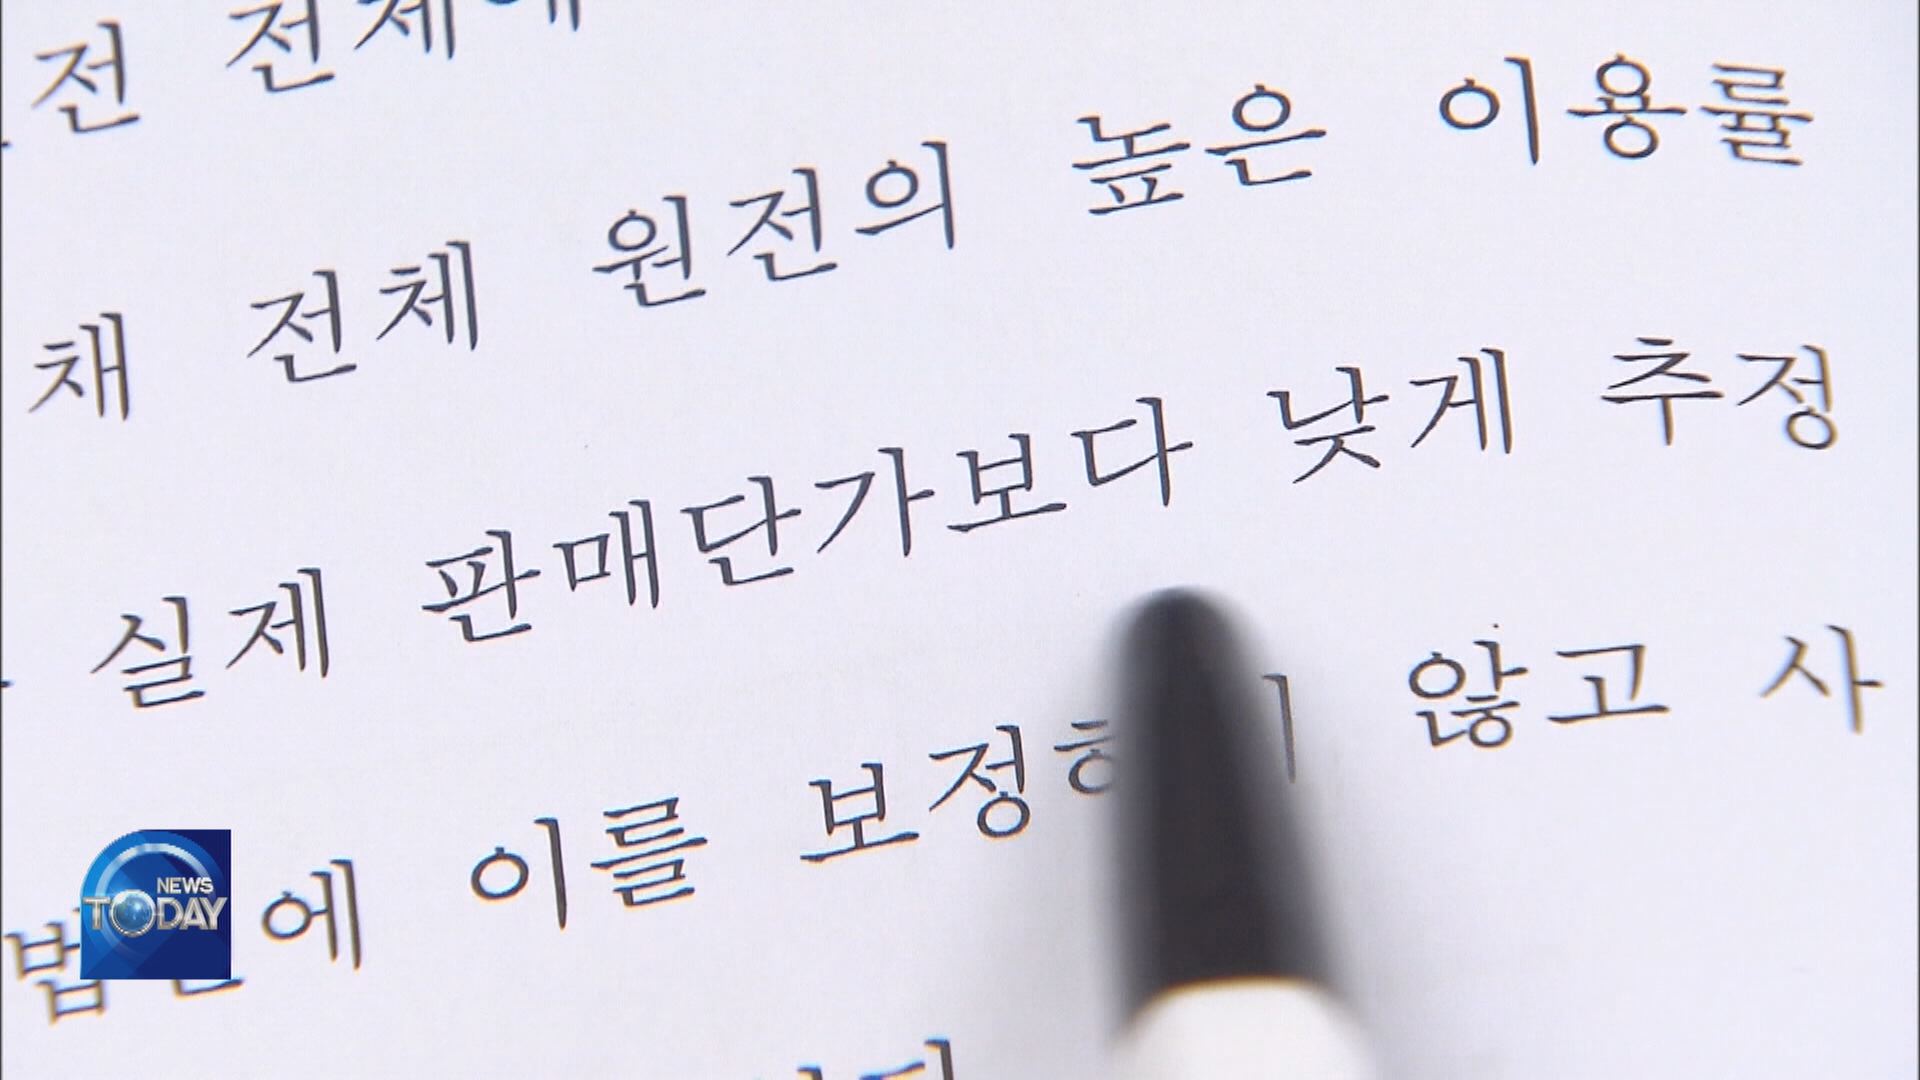 전 전체에
채 전체 원전의 높은 이용률
실제 판매단가보다 낮게 추정
이를 않고 사
NEWS
TODAY